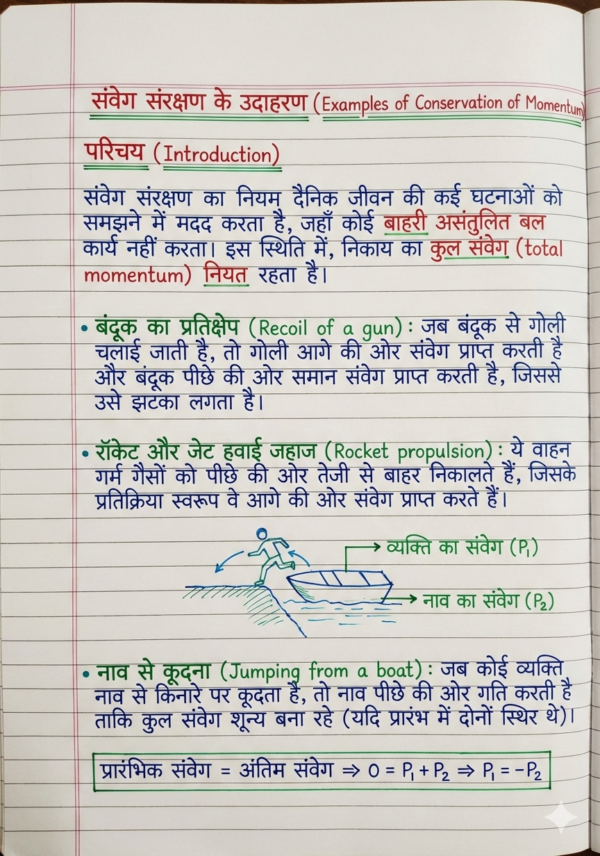 संवेग संरक्षण के उदाहरण (Examples of Conservation of Momentum)
परिचय (Introduction)
संवेग संरक्षण का नियम दैनिक जीवन की कई घटनाओं को
समझने में मदद करता है, जहाँ कोई बाहरी असंतुलित बल
कार्य नहीं करता। इस स्थिति में, निकाय का कुल संवेग (total
momentum) नियत रहता है।
• बंदूक का प्रतिक्षेप (Recoil of a gun) : जब बंदूक से गोली
चलाई जाती है, तो गोली आगे की ओर संवेग प्राप्त करती है
और बंदूक पीछे की ओर समान संवेग प्राप्त करती है, जिससे
उसे झटका लगता है।
• रॉकेट और जेट हवाई जहाज (Rocket propulsion) : ये वाहन
गर्म गैसों को पीछे की ओर तेजी से बाहर निकालते हैं, जिसके
प्रतिक्रिया स्वरूप वे आगे की ओर संवेग प्राप्त करते हैं।
व्यक्ति का संवेग (P₁)
नाव का संवेग (P₂)
• नाव से कूदना (Jumping from a boat) : जब कोई व्यक्ति
नाव से किनारे पर कूदता है, तो नाव पीछे की ओर गति करती है
ताकि कुल संवेग शून्य बना रहे (यदि प्रारंभ में दोनों स्थिर थे)।
प्रारंभिक संवेग = अंतिम संवेग ⇒ 0 = P₁ + P₂ ⇒ P₁ = -P₂